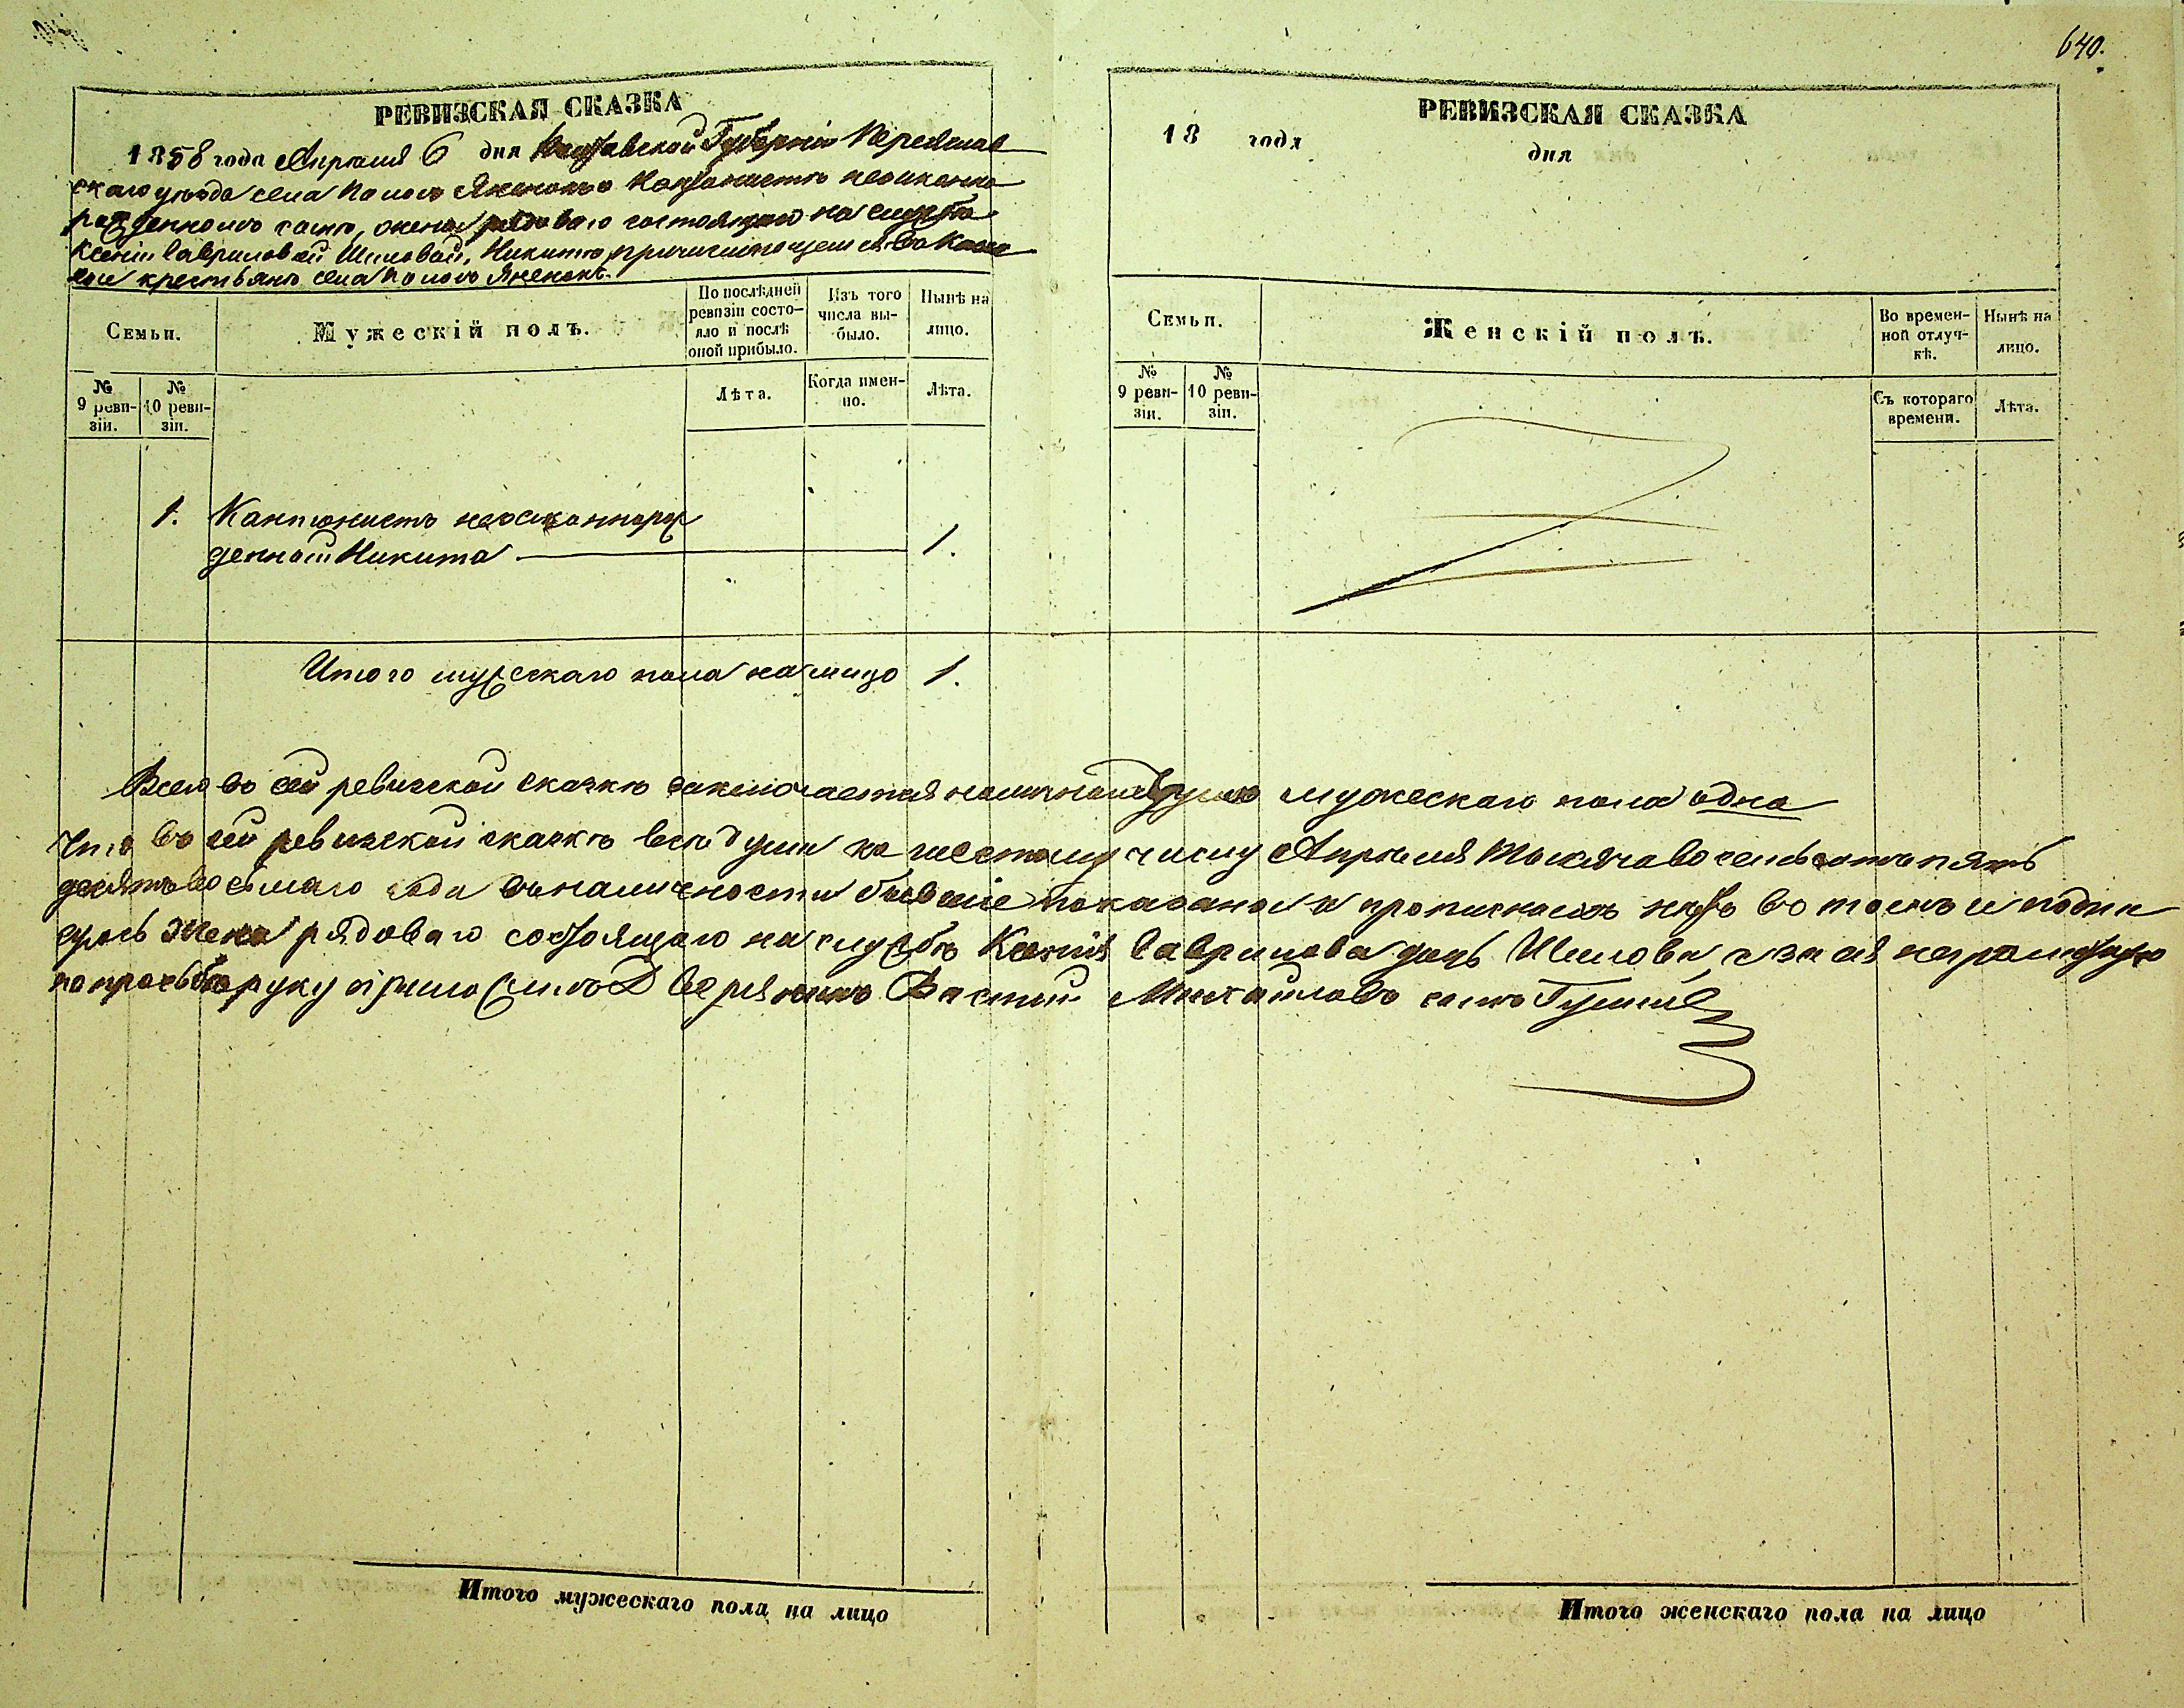 640.
РЕВИЗСКАЯ СКАЗКА
1858 года Апрѣля 6 дня Полтавской Губерніи Переяслав
скаго уѣзда села Помоклъ о Кантонистѣ незаконно
рожденномъ сынѣ, жены рядоваго состоящаго на службѣ
Ксеніи Гавриловой Шиловой, Никитѣ, причисляющемся въ
крестьянъ села
Семьи.
Мужескій полъ.
По послѣдней ревизіи состояло и послѣ оной прибыло.
Изъ того числа выбыло.
Нынѣ на лицо.
№ 9 ревизіи.
№ 10 ревизіи.
Лѣта.
Когда именно.
Лѣта.
1. Кантонистъ незаконнорож
денный Никита 1.
Итого мужескаго пола на лицо 1.
РЕВИЗСКАЯ СКАЗКА
18 года дня
Семьи.
Женскій полъ.
Во временной отлучкѣ.
Нынѣ на лицо.
№ 9 ревизіи.
№ 10 ревизіи.
Съ котораго времени.
Лѣта.
Всего въ сей ревизской сказкѣ заключается наличная душа мужескаго пола одна
Что въ сей ревизской сказкѣ всѣ души къ шестому числу Апрѣля тысяча восемьсотъ пять
десятъ восьмаго года въ наличности бывшіе показаны и прописныхъ нѣтъ въ томъ и подпи
суюсь жена рядоваго состоящаго на службѣ Ксенія Гаврилова дочь Шилова а за ея неграмотную
по просьбѣ руку приложилъ Дворянинъ Василій Михайловъ сынъ
Итого мужескаго пола на лицо
Итого женскаго пола на лицо